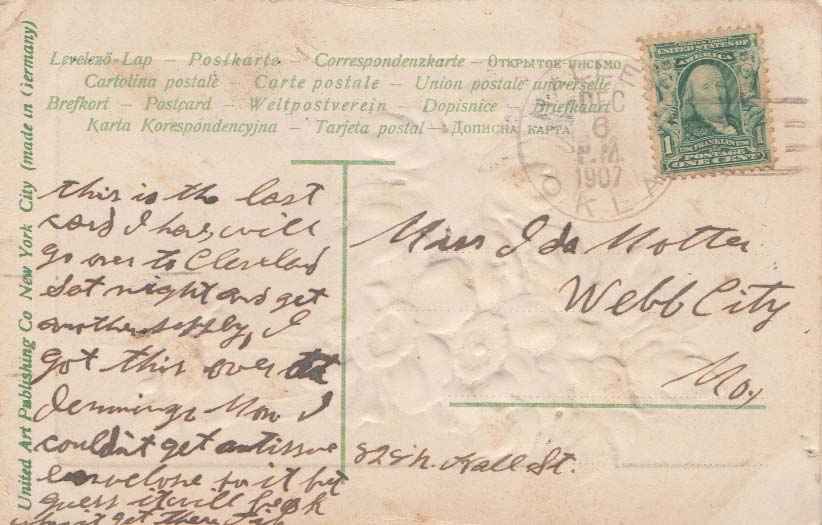 Levelező-Lap — Postkarte — Correspondenzkarte — Открытое письмо
Cartolina postale — Carte postale — Union postale universelle
Brefkort — Postcard — Weltpostverein — Dopisnice — Briefkaart
Karta Korespondencyjna — Tarjeta postal — Дописна карта
United Art Publishing Co New York City (made in Germany)
DEC
6
P.M.
1907
OKLA
UNITED STATES OF
AMERICA
1 FRANKLIN 1
POSTAGE
ONE CENT
this is the last
card I have, will
go over to Cleveland
Sat night and get
another supply, I
got this over at
Jennings Mon I
couldn't get a tissue
envelope for it but
guess it will look
get there
Miss Ida Motter
Webb City
Mo,
828 N. Hall St.